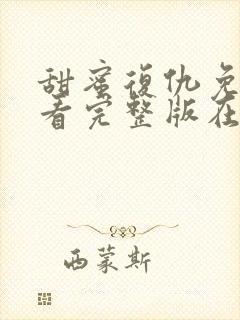 甜蜜復仇免
看完整版在
西蒙斯